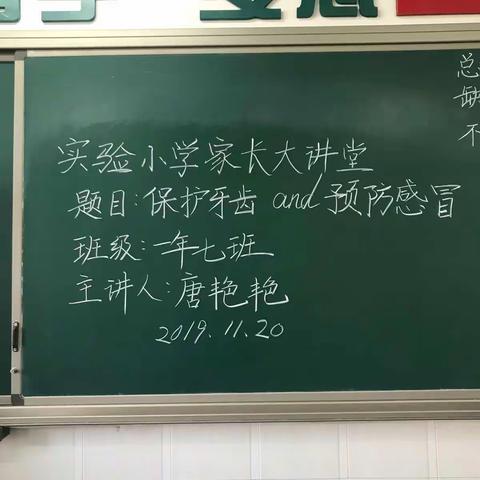 实验小学家长大讲堂
题目:保护牙齿 and 预防感冒
班级:一年七班
主讲人:唐艳艳
2019.11.20
总
缺
不